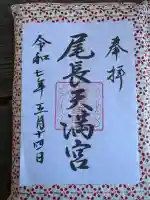 奉拝
尾長天満宮
令和七年五月十四日